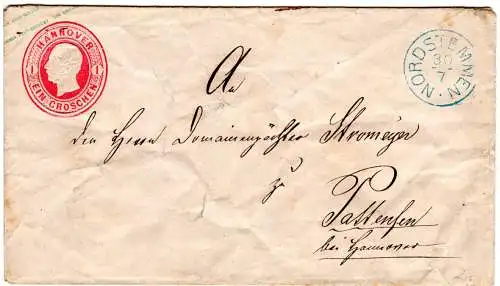 HANNOVER
1 1
EIN GROSCHEN
NORDSTEMMEN.
30
7
An
den Herrn Domainenpächter Stromeyer
zu
Pattensen
bei Hannover